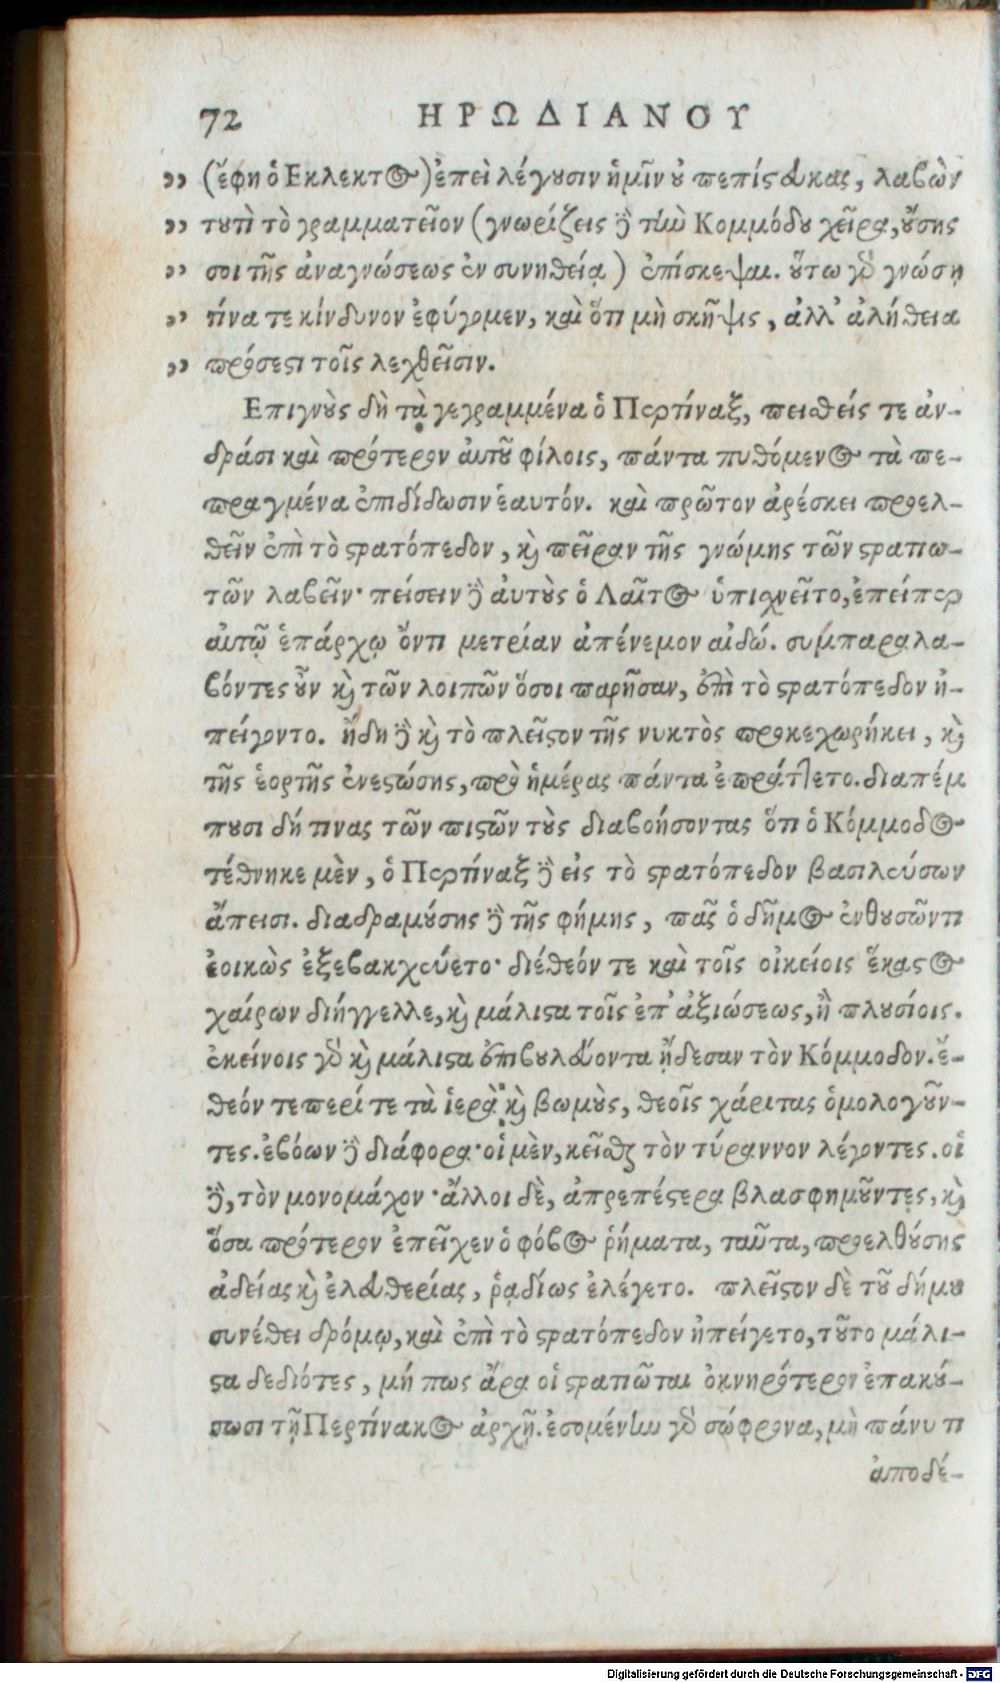 72 ΗΡΩΔΙΑΝΟΥ
„ (ἔφη ὁ Εκλεκτος) ἐπεὶ λέγουσιν ἡμῖν οὐ πεπίστευκας, λαβὼν
„ τουτὶ τὸ γραμματεῖον (γνωρίζεις δὲ τὴν Κομμόδου χεῖρα, οὔσης
„ σοι τῆς ἀναγνώσεως ἐν συνηθείᾳ) ἐπίσκεψαι. οὕτω γὰρ γνώσῃ
„ τίνα τε κίνδυνον ἐφύγομεν, καὶ ὅτι μὴ σκῆψις, ἀλλ' ἀλήθεια
„ πρόσεστι τοῖς λεχθεῖσιν.
Επιγνοὺς δὴ τὰ γεγραμμένα ὁ Περτίναξ, πειθείς τε ἀν-
δράσι καὶ πρότερον αὐτοῦ φίλοις, πάντα πυθόμενος τὰ πε-
πραγμένα ἐπιδίδωσιν ἑαυτόν. καὶ πρῶτον ἀρέσκει προελ-
θεῖν ἐπὶ τὸ στρατόπεδον, καὶ πεῖραν τῆς γνώμης τῶν στρατιω-
τῶν λαβεῖν· πείσειν δὲ αὐτοὺς ὁ Λαῖτος ὑπισχνεῖτο, ἐπείπερ
αὐτῷ ἐπάρχῳ ὄντι μετρίαν ἀπένεμον αἰδώ. συμπαραλα-
βόντες οὖν καὶ τῶν λοιπῶν ὅσοι παρῆσαν, ἐπὶ τὸ στρατόπεδον ἠ-
πείγοντο. ἤδη δὲ καὶ τὸ πλεῖστον τῆς νυκτὸς προκεχωρήκει, καὶ
τῆς ἑορτῆς ἐνεστώσης, πρὸ ἡμέρας πάντα ἐπράττετο. διαπέμ
πουσι δή τινας τῶν πιστῶν τοὺς διαβοήσοντας ὅτι ὁ Κόμμοδος
τέθνηκε μὲν, ὁ Περτίναξ δὲ εἰς τὸ στρατόπεδον βασιλεύσων
ἄπεισι. διαδραμούσης δὲ τῆς φήμης, πᾶς ὁ δῆμος ἐνθουσῶντι
ἐοικὼς ἐξεβακχεύετο· διέθεόν τε καὶ τοῖς οἰκείοις ἕκαστος
χαίρων διήγγελλε, καὶ μάλιστα τοῖς ἐπ' ἀξιώσεως, ἢ πλουσίοις.
ἐκείνοις γὰρ καὶ μάλιστα ἐπιβουλεύοντα ᾔδεσαν τὸν Κόμμοδον. ἔ-
θεόν τε περί τε τὰ ἱερὰ καὶ βωμοὺς, θεοῖς χάριτας ὁμολογοῦν-
τες. ἐβόων δὲ διάφορα· οἱ μὲν, κεῖσθαι τὸν τύραννον λέγοντες. οἱ
δὲ, τὸν μονομάχον· ἄλλοι δὲ, ἀπρεπέστερα βλασφημοῦντες, καὶ
ὅσα πρότερον ἐπεῖχεν ὁ φόβος ῥήματα, ταῦτα, προελθούσης
ἀδείας καὶ ἐλευθερίας, ῥᾳδίως ἐλέγετο. πλεῖστον δὲ τοῦ δήμου
συνέθει δρόμῳ, καὶ ἐπὶ τὸ στρατόπεδον ἠπείγετο, τοῦτο μάλι-
στα δεδιότες, μή πως ἄρα οἱ στρατιῶται ὀκνηρότερον ἐπακού-
σωσι τῇ Περτίνακος ἀρχῇ. ἐσομένην γὰρ σώφρονα, μὴ πάνυ τι
ἀποδέ-
Digitalisierung gefördert durch die Deutsche Forschungsgemeinschaft - DFG